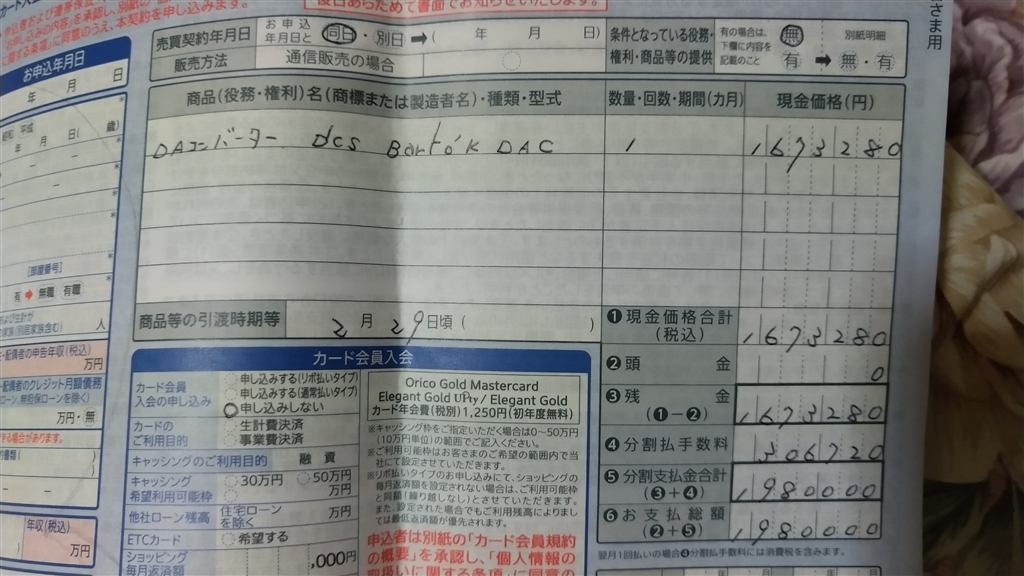 後日あらためて書面でお知らせいたします。
さま用
売買契約年月日
お申込年月日と
同日・別日➡( 年 月 日)
条件となっている役務・権利・商品等の提供
有の場合は、下欄に内容を記載のこと
無
有
別紙明細
➡無・有
販売方法
通信販売の場合
商品(役務・権利)名(商標または製造者名)・種類・型式
数量・回数・期間(カ月)
現金価格(円)
DAコンバーター dcs Bartók DAC
1
1673280
商品等の引渡時期等
2月29日頃( )
❶現金価格合計(税込)
1673280
❷頭金
0
❸残金(❶−❷)
1673280
❹分割払手数料
306720
❺分割支払金合計(❸+❹)
1980000
❻お支払総額(❷+❺)
1980000
翌月1回払いの場合❹分割払手数料には消費税を含みます。
カード会員入会
カード会員入会の申し込み
申し込みする(リボ払いタイプ)
申し込みする(通常払いタイプ)
申し込みしない
カードのご利用目的
生計費決済
事業費決済
キャッシングのご利用目的
融資
キャッシング希望利用可能枠
30万円
50万円
万円
他社ローン残高
住宅ローンを除く
万円
ETCカード
希望する
ショッピング毎月返済額
,000円
Orico Gold Mastercard
Elegant Gold UPty / Elegant Gold
カード年会費(税別)1,250円(初年度無料)
※キャッシング枠をご指定いただく場合は0〜50万円
(10万円単位)の範囲でご記入ください。
※ご利用可能枠はお客さまのご希望の範囲内で当
社にて設定させていただきます。
※リボ払いタイプのお申込みにて、ショッピングの
毎月返済額を設定されない場合は、ご利用可能枠
と同額(繰り越しなし)とさせていただきます。
また、設定された場合でもご利用残高によりまし
ては最低返済額が優先されます。
申込者は別紙の「カード会員規約
の概要」を承認し、「個人情報の
取扱いに関する条項」に同意の
お申込年月日
年 月 日
昭和 平成
年 月 日( 歳)
[部屋番号]
有➡無職 有職
人
・配偶者の申告年収(税込)
万円
・配偶者のクレジット月額債務
万円・無
年収(税込)
万円